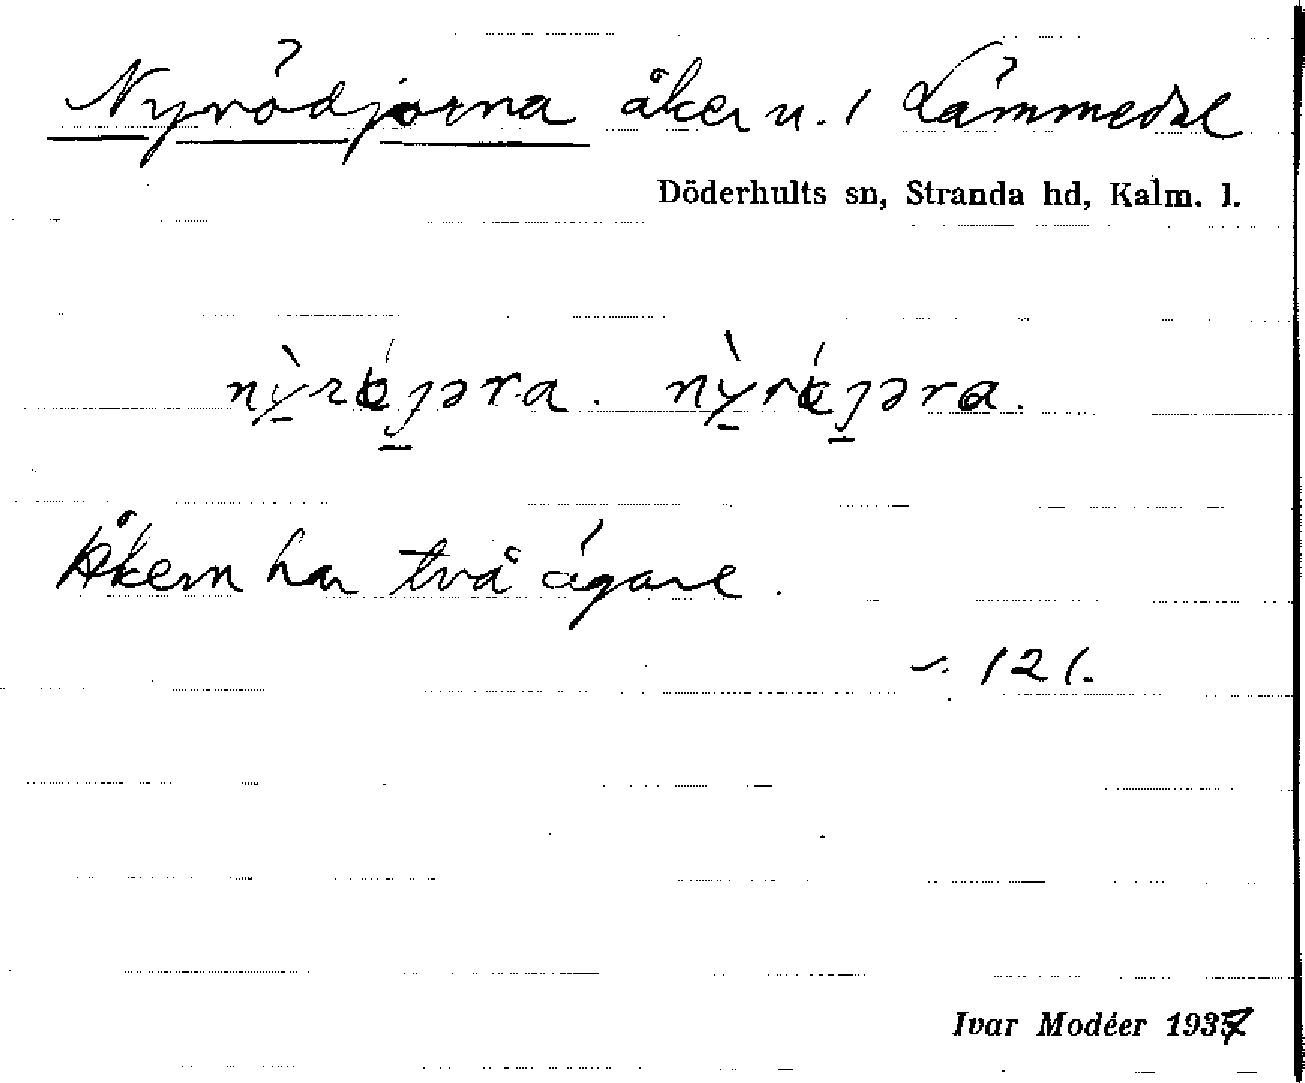 Nyrödjorna åker u. 1 Lämmedal
Döderhults sn, Stranda hd, Kalm. l.
Åkern har två ägare.
s. 121.
Ivar Modéer 1937